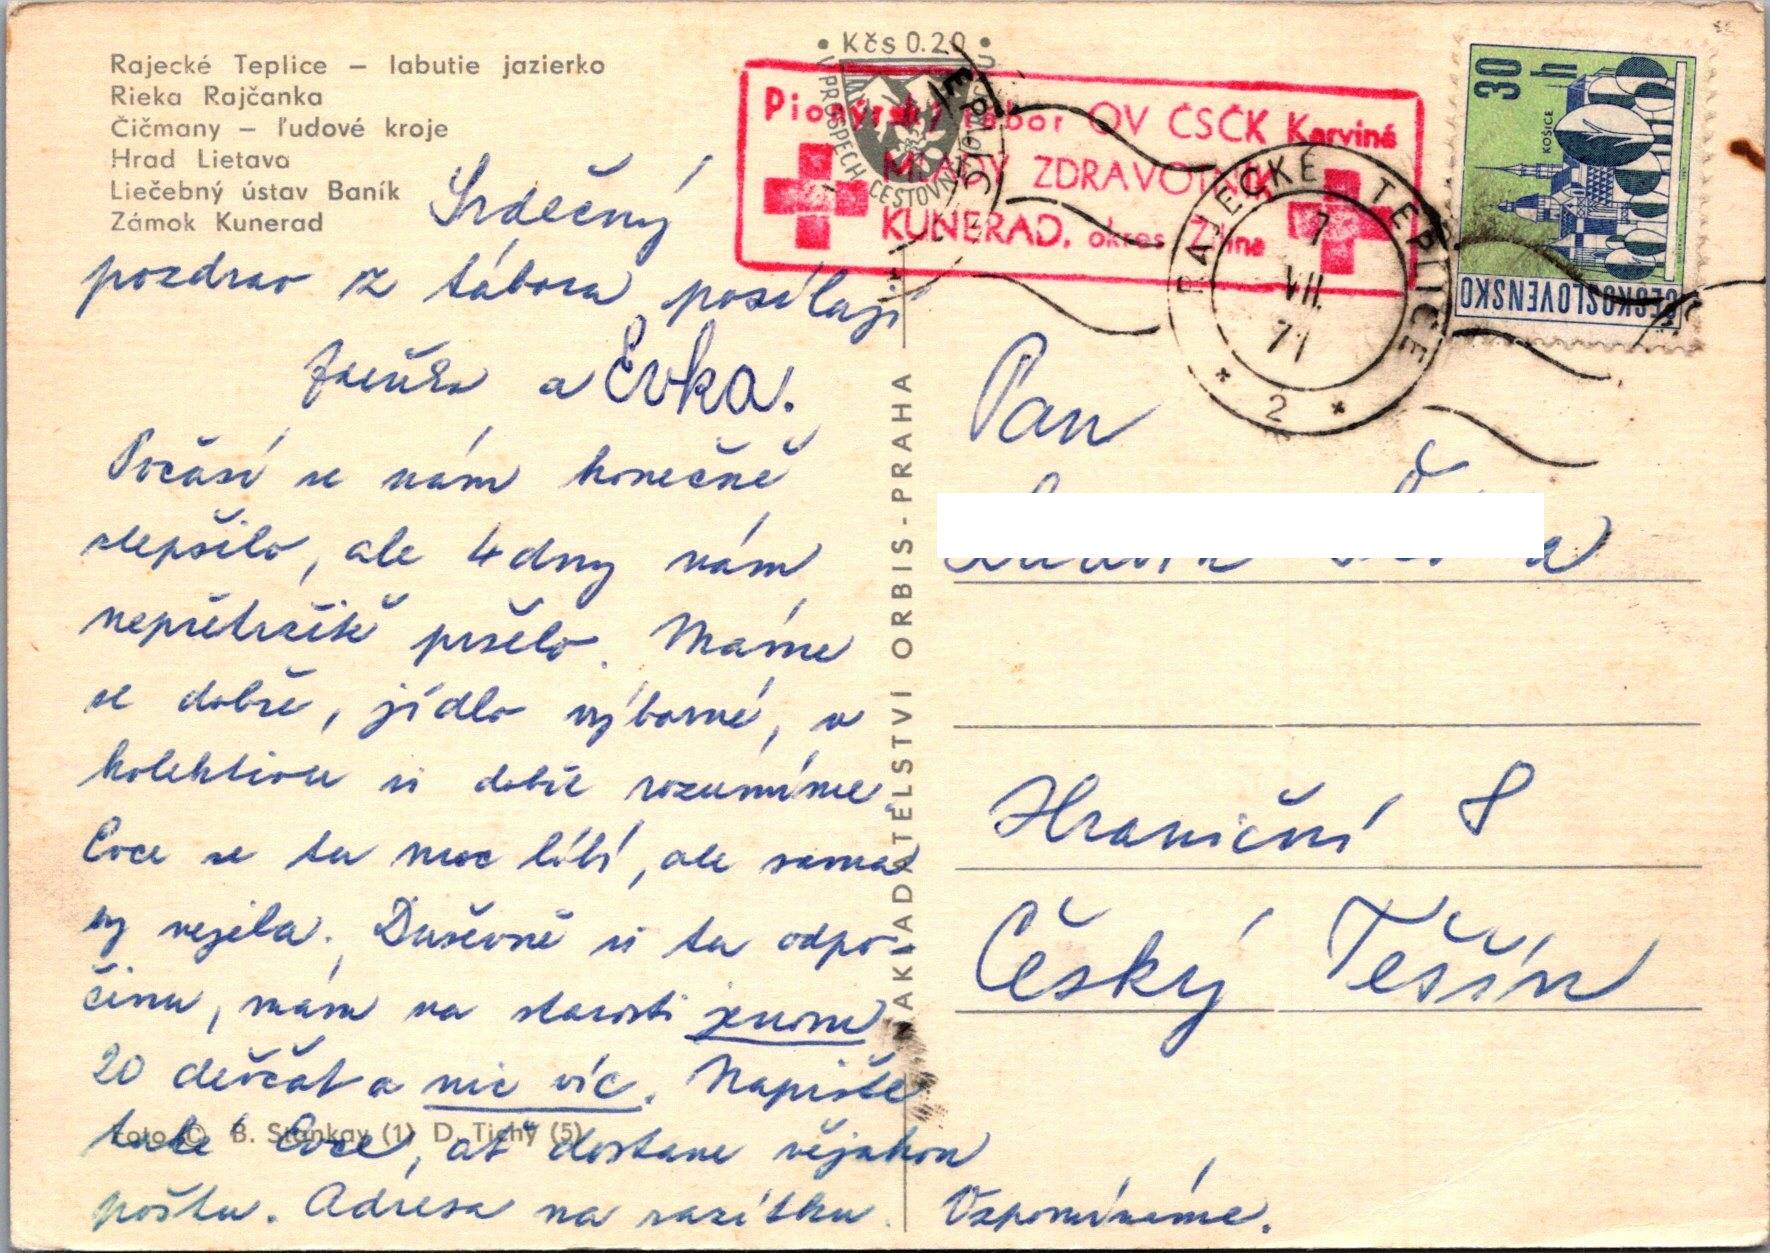 Rajecké Teplice – labutie jazierko
Rieka Rajčanka
Čičmany – ľudové kroje
Hrad Lietava
Liečebný ústav Baník
Zámok Kunerad
Srdečný
pozdrav z tábora posílají
a Evka.
Počasí se nám konečně
zlepšilo, ale 4 dny nám
nepřetržitě pršelo. Máme
se dobře, jídlo výborné, v
kolektivu si dobře rozumíme.
Evce se tu moc líbí, ale sama
by nejela. Duševně si tu odpo-
činu, mám na starosti jenom
20 děvčat a nic víc. Napište
také Evce, ať dostane nějakou
poštu. Adresa na razítku.
Vzpomínáme.
Foto © B. Stankay (1) D. Tichý (5)
NAKLADATELSTVÍ ORBIS - PRAHA
• Kčs 0.20 •
V PROSPĚCH CESTOVNÍHO
Pionýrský tábor OV ČSČK Karviná
MLADÝ ZDRAVOTNÍK
KUNERAD, okres Žilina
RAJECKÉ TEPLICE
7
VII.
71
* 2 *
30 h
KOŠICE
ČESKOSLOVENSKO
Pan
Hraniční 8
Český Těšín